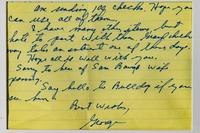 am sending 109 checks. Hope you
can use all of them.
I have many other items, but
hate to part with them. Maybe
way take an extent one of these days.
Hope all is well with you.
Sorry to hear of San
passing.
Say hello to Bulldog if you
see him
Best Wishes,
George